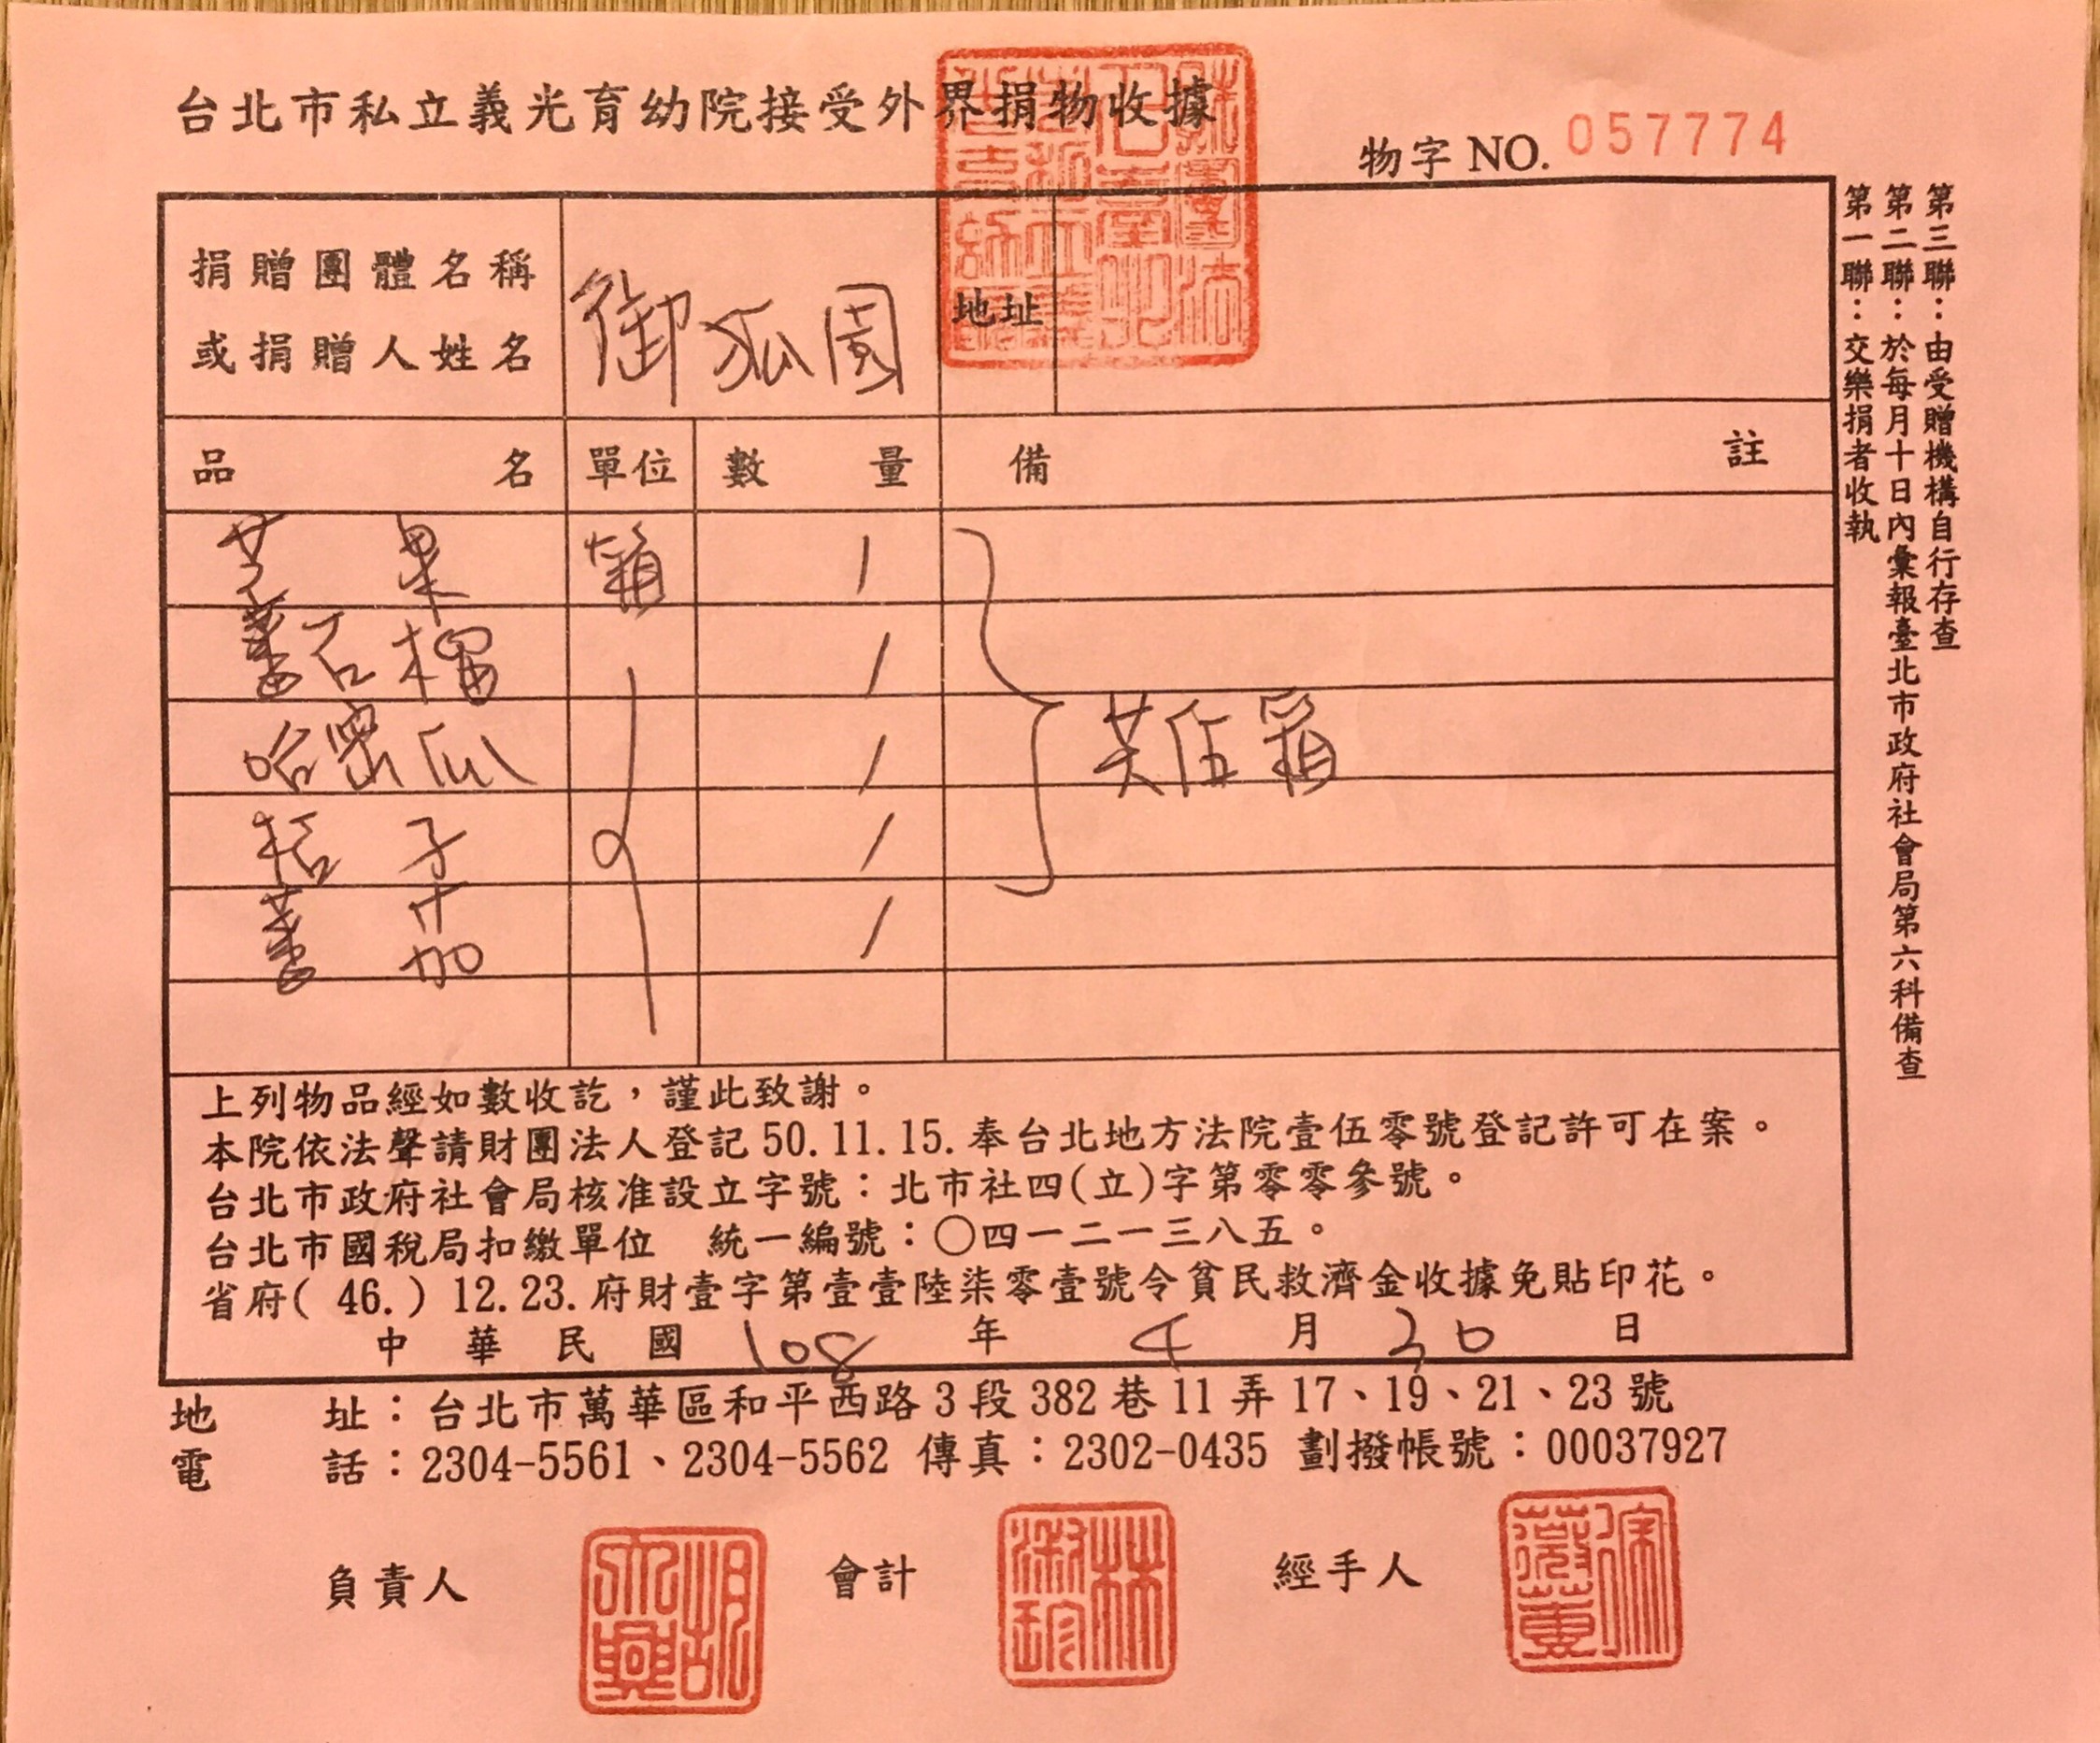 台北市私立義光育幼院接受外界捐物收據
物字 NO. 057774
捐贈團體名稱
或捐贈人姓名
御狐園
地址
品名 單位 數量 備註
芒果 箱 1
蕃石榴 1
哈密瓜 1
桔子 1
蕃茄 1
共伍箱
第一聯：交樂捐者收執
第二聯：於每月十日內彙報臺北市政府社會局第六科備查
第三聯：由受贈機構自行存查
上列物品經如數收訖，謹此致謝。
本院依法聲請財團法人登記 50.11.15.奉台北地方法院壹伍零號登記許可在案。
台北市政府社會局核准設立字號：北市社四(立)字第零零參號。
台北市國稅局扣繳單位 統一編號：〇四一二一三八五。
省府( 46.) 12.23.府財壹字第壹壹陸柒零壹號令貧民救濟金收據免貼印花。
中華民國 108 年 4 月 30 日
地址：台北市萬華區和平西路 3 段 382 巷 11 弄 17、19、21、23 號
電話：2304-5561、2304-5562 傳真：2302-0435 劃撥帳號：00037927
負責人 會計 林淑珍 經手人